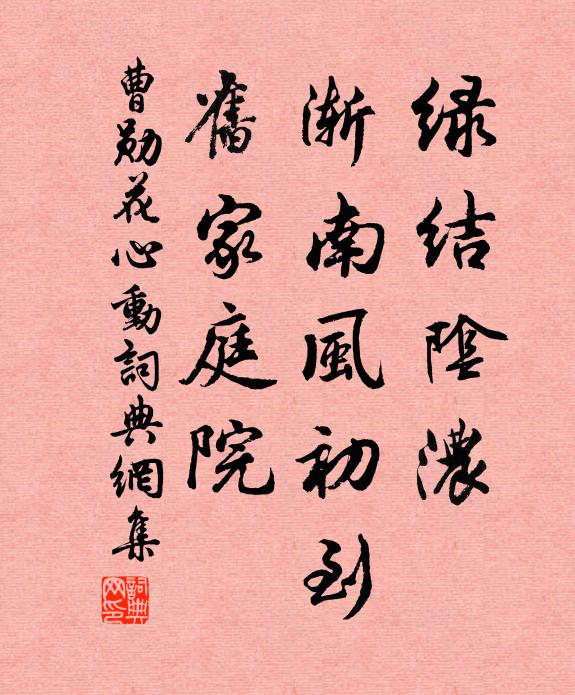 绿结陰濃
漸南風初到
舊家庭院
曹勛花心動詞典網集
詞典网印